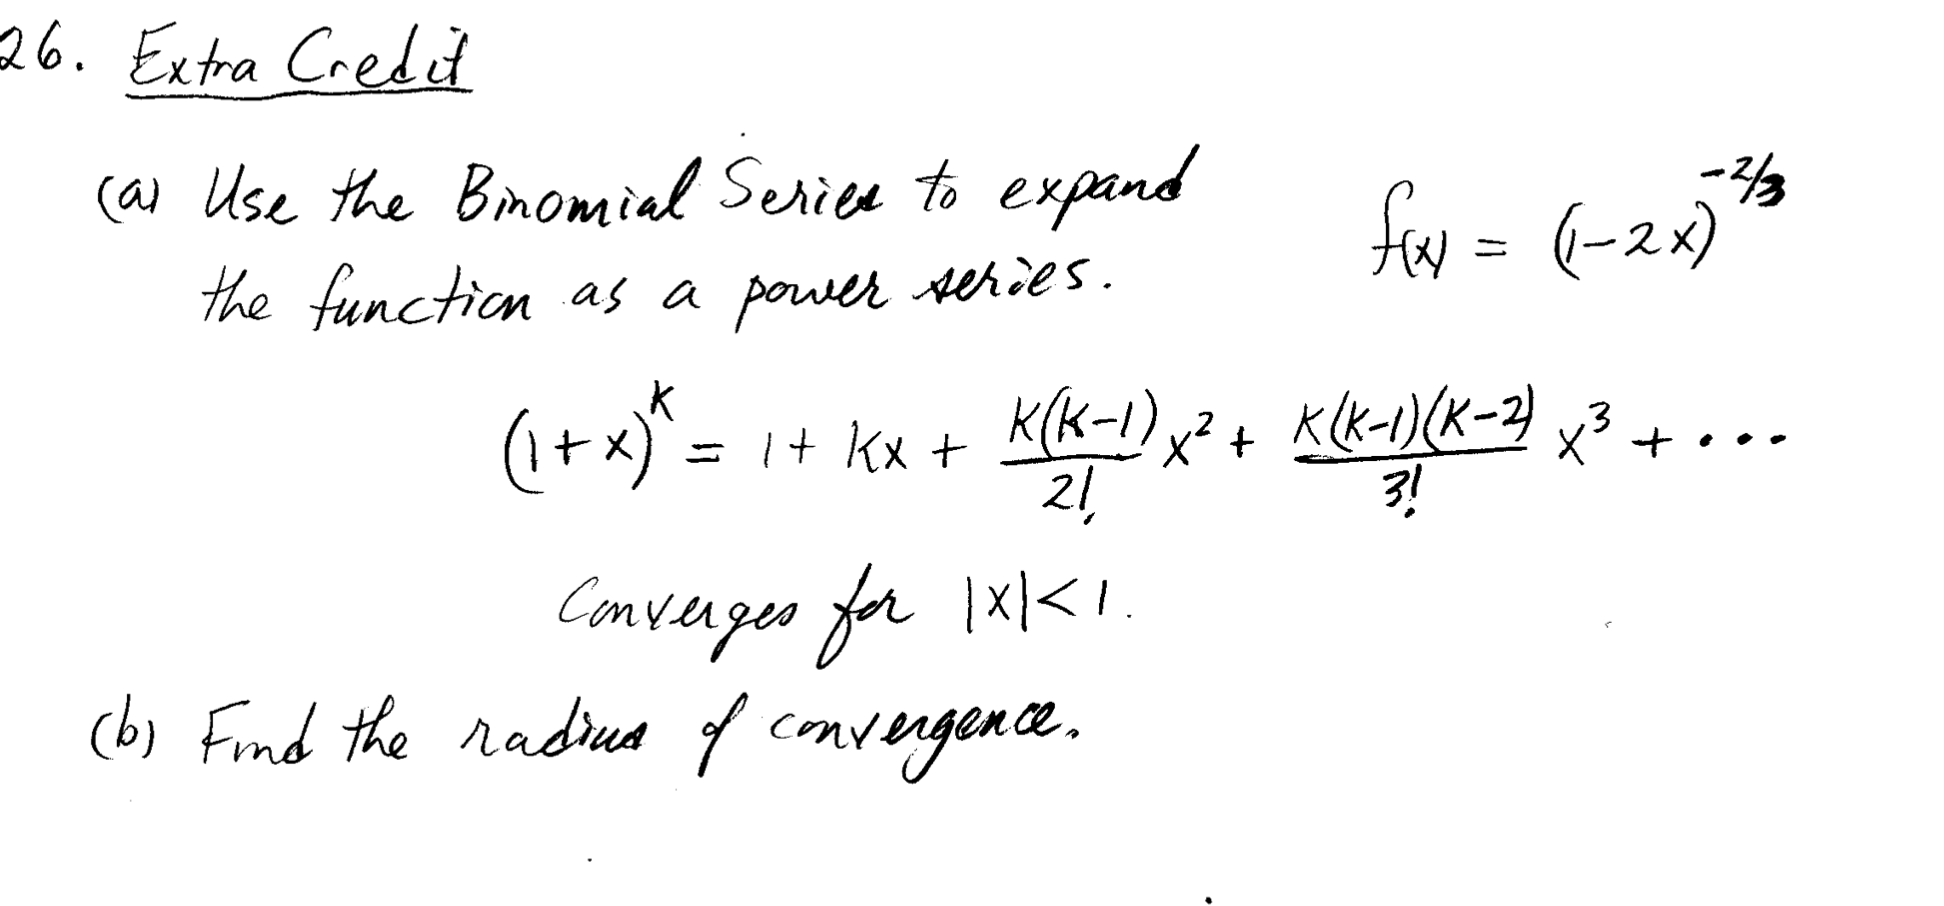 26. Extra Credit
(a) Use the Binomial Series to expand f(x) = (1-2x)^{-2/3}
the function as a power series.
(1+x)^K = 1 + Kx + \frac{K(K-1)}{2!} x^2 + \frac{K(K-1)(K-2)}{3!} x^3 + ...
Converges for |x|<1.
(b) Find the radius of convergence.